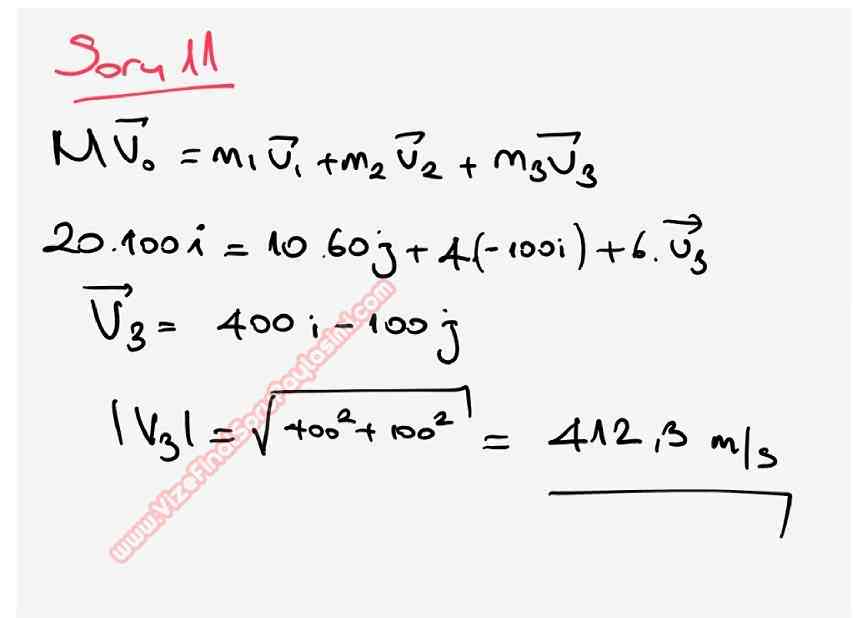 Soru 11
M\vec{V}₀ = m₁\vec{v}₁ + m₂\vec{v}₂ + m₃\vec{v}₃
20.100i = 10.60j + 4(-100i) + 6.\vec{v}₃
\vec{V}₃ = 400i - 100j
|V₃| = √(400² + 100²) = 412,3 m/s
www.VizeFinalSoruPaylasimi.com